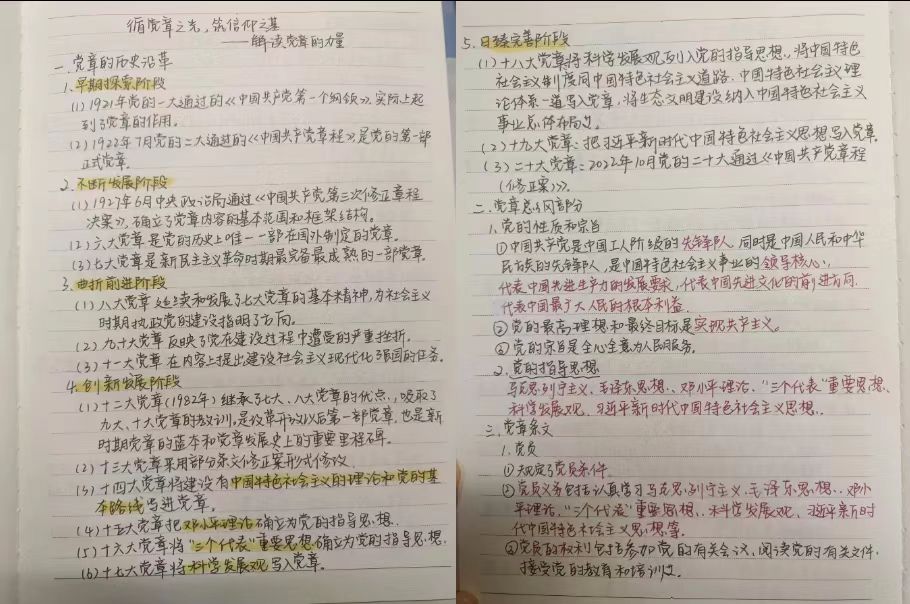 循党章之光,筑信仰之基
——解读党章的力量
一.党章的历史沿革
1.早期探索阶段
(1)1921年党的一大通过的《中国共产党第一个纲领》,实际上起
到了党章的作用。
(2)1922年7月党的二大通过的《中国共产党章程》是党的第一部
正式党章。
2.不断发展阶段
(1)1927年6月中央政治局通过《中国共产党第三次修正章程
决案》,确立了党章内容的基本范围和框架结构。
(2)六大党章是党的历史上唯一一部在国外制定的党章。
(3)七大党章是新民主主义革命时期最完备最成熟的一部党章。
3.曲折前进阶段
(1)八大党章继续和发展了七大党章的基本精神,为社会主义
时期执政党的建设指明了方向。
(2)九十大党章反映了党在建设过程中遭受的严重挫折。
(3)十一大党章在内容上提出建设社会主义现代化强国的任务。
4.创新发展阶段
(1)十二大党章(1982年)继承了七大、八大党章的优点,吸取了
九大、十大党章的教训,是改革开放以后第一部党章,也是新
时期党章的蓝本和党章发展史上的重要里程碑。
(2)十三大党章采用部分条文修正案形式修改.
(3)十四大党章将建设有中国特色社会主义的理论和党的基
本路线写进党章。
(4)十五大党章把邓小平理论确立为党的指导思想.
(5)十六大党章将“三个代表”重要思想确立为党的指导思想.
(6)十七大党章将科学发展观写入党章。
5.日臻完善阶段
(1)十八大党章将科学发展观列入党的指导思想,将中国特色
社会主义制度同中国特色社会主义道路、中国特色社会主义理
论体系一道写入党章,将生态文明建设纳入中国特色社会主义
事业总体布局。
(2)十九大党章:把习近平新时代中国特色社会主义思想写入党章.
(3)二十大党章:2022年10月党的二十大通过《中国共产党章程
(修正案)》.
二.党章总纲部分
1.党的性质和宗旨
①中国共产党是中国工人阶级的先锋队,同时是中国人民和中华
民族的先锋队,是中国特色社会主义事业的领导核心,
代表中国先进生产力的发展要求,代表中国先进文化的前进方向.
代表中国最广大人民的根本利益.
②党的最高理想和最终目标是实现共产主义。
③党的宗旨是全心全意为人民服务。
2.党的指导思想
马克思列宁主义、毛泽东思想、邓小平理论、“三个代表”重要思想、
科学发展观、习近平新时代中国特色社会主义思想.
三.党章条文
1.党员
①规定了党员条件.
②党员义务包括认真学习马克思列宁主义、毛泽东思想、邓小
平理论、“三个代表”重要思想、科学发展观、习近平新时
代中国特色社会主义思想等.
③党员的权利包括参加党的有关会议,阅读党的有关文件,
接受党的教育和培训等.